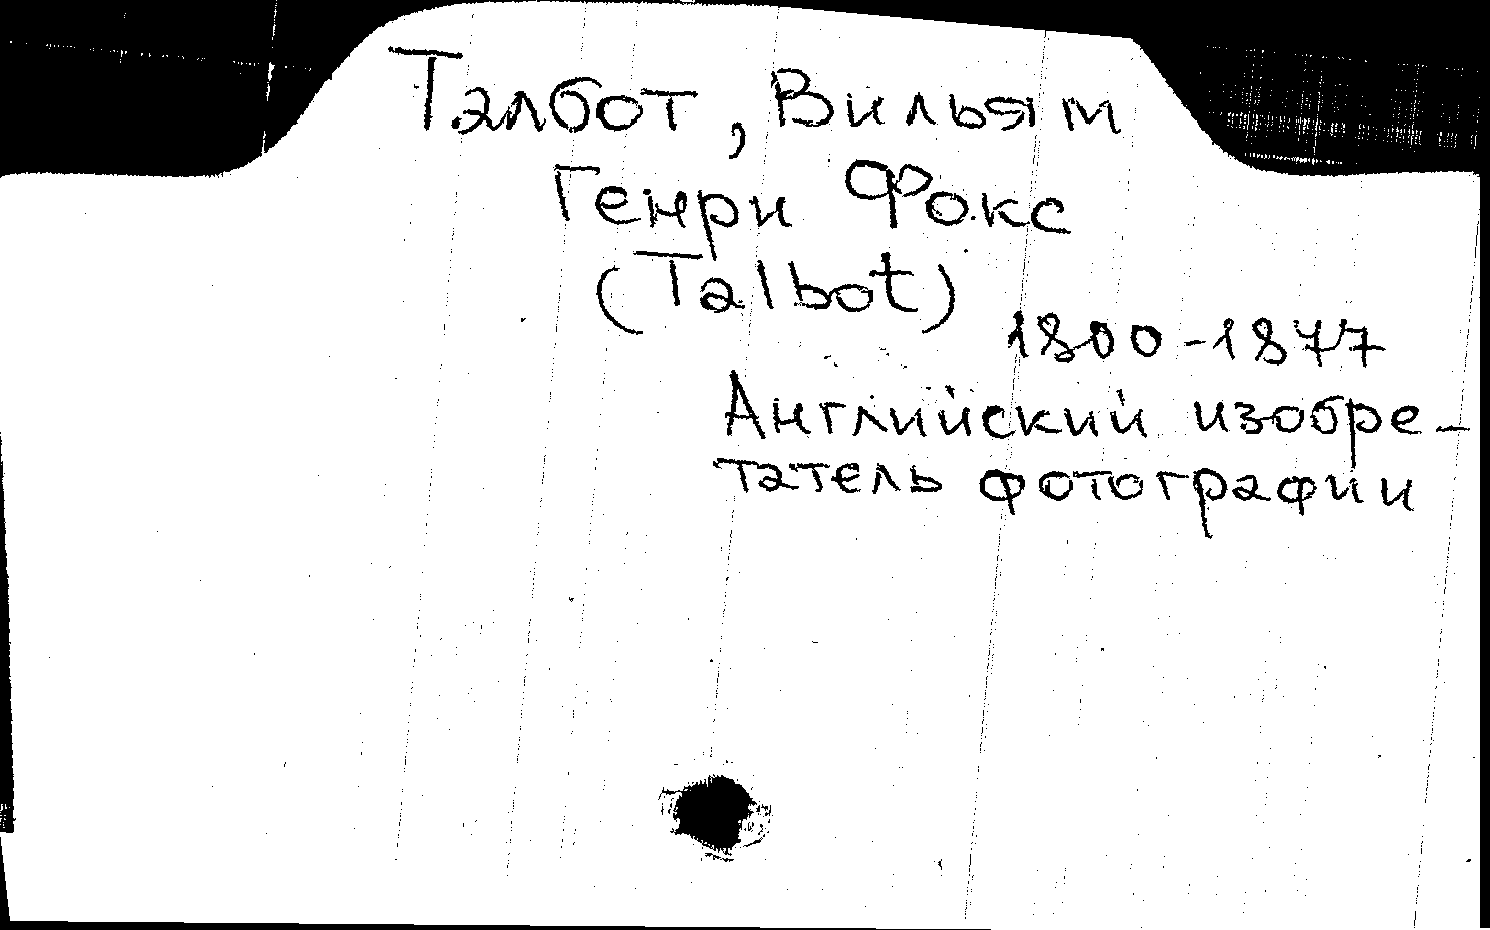 Талбот, Вильям
Генри Фокс
(Talbot)
1800-1877
Английский изобре-
татель фотографии